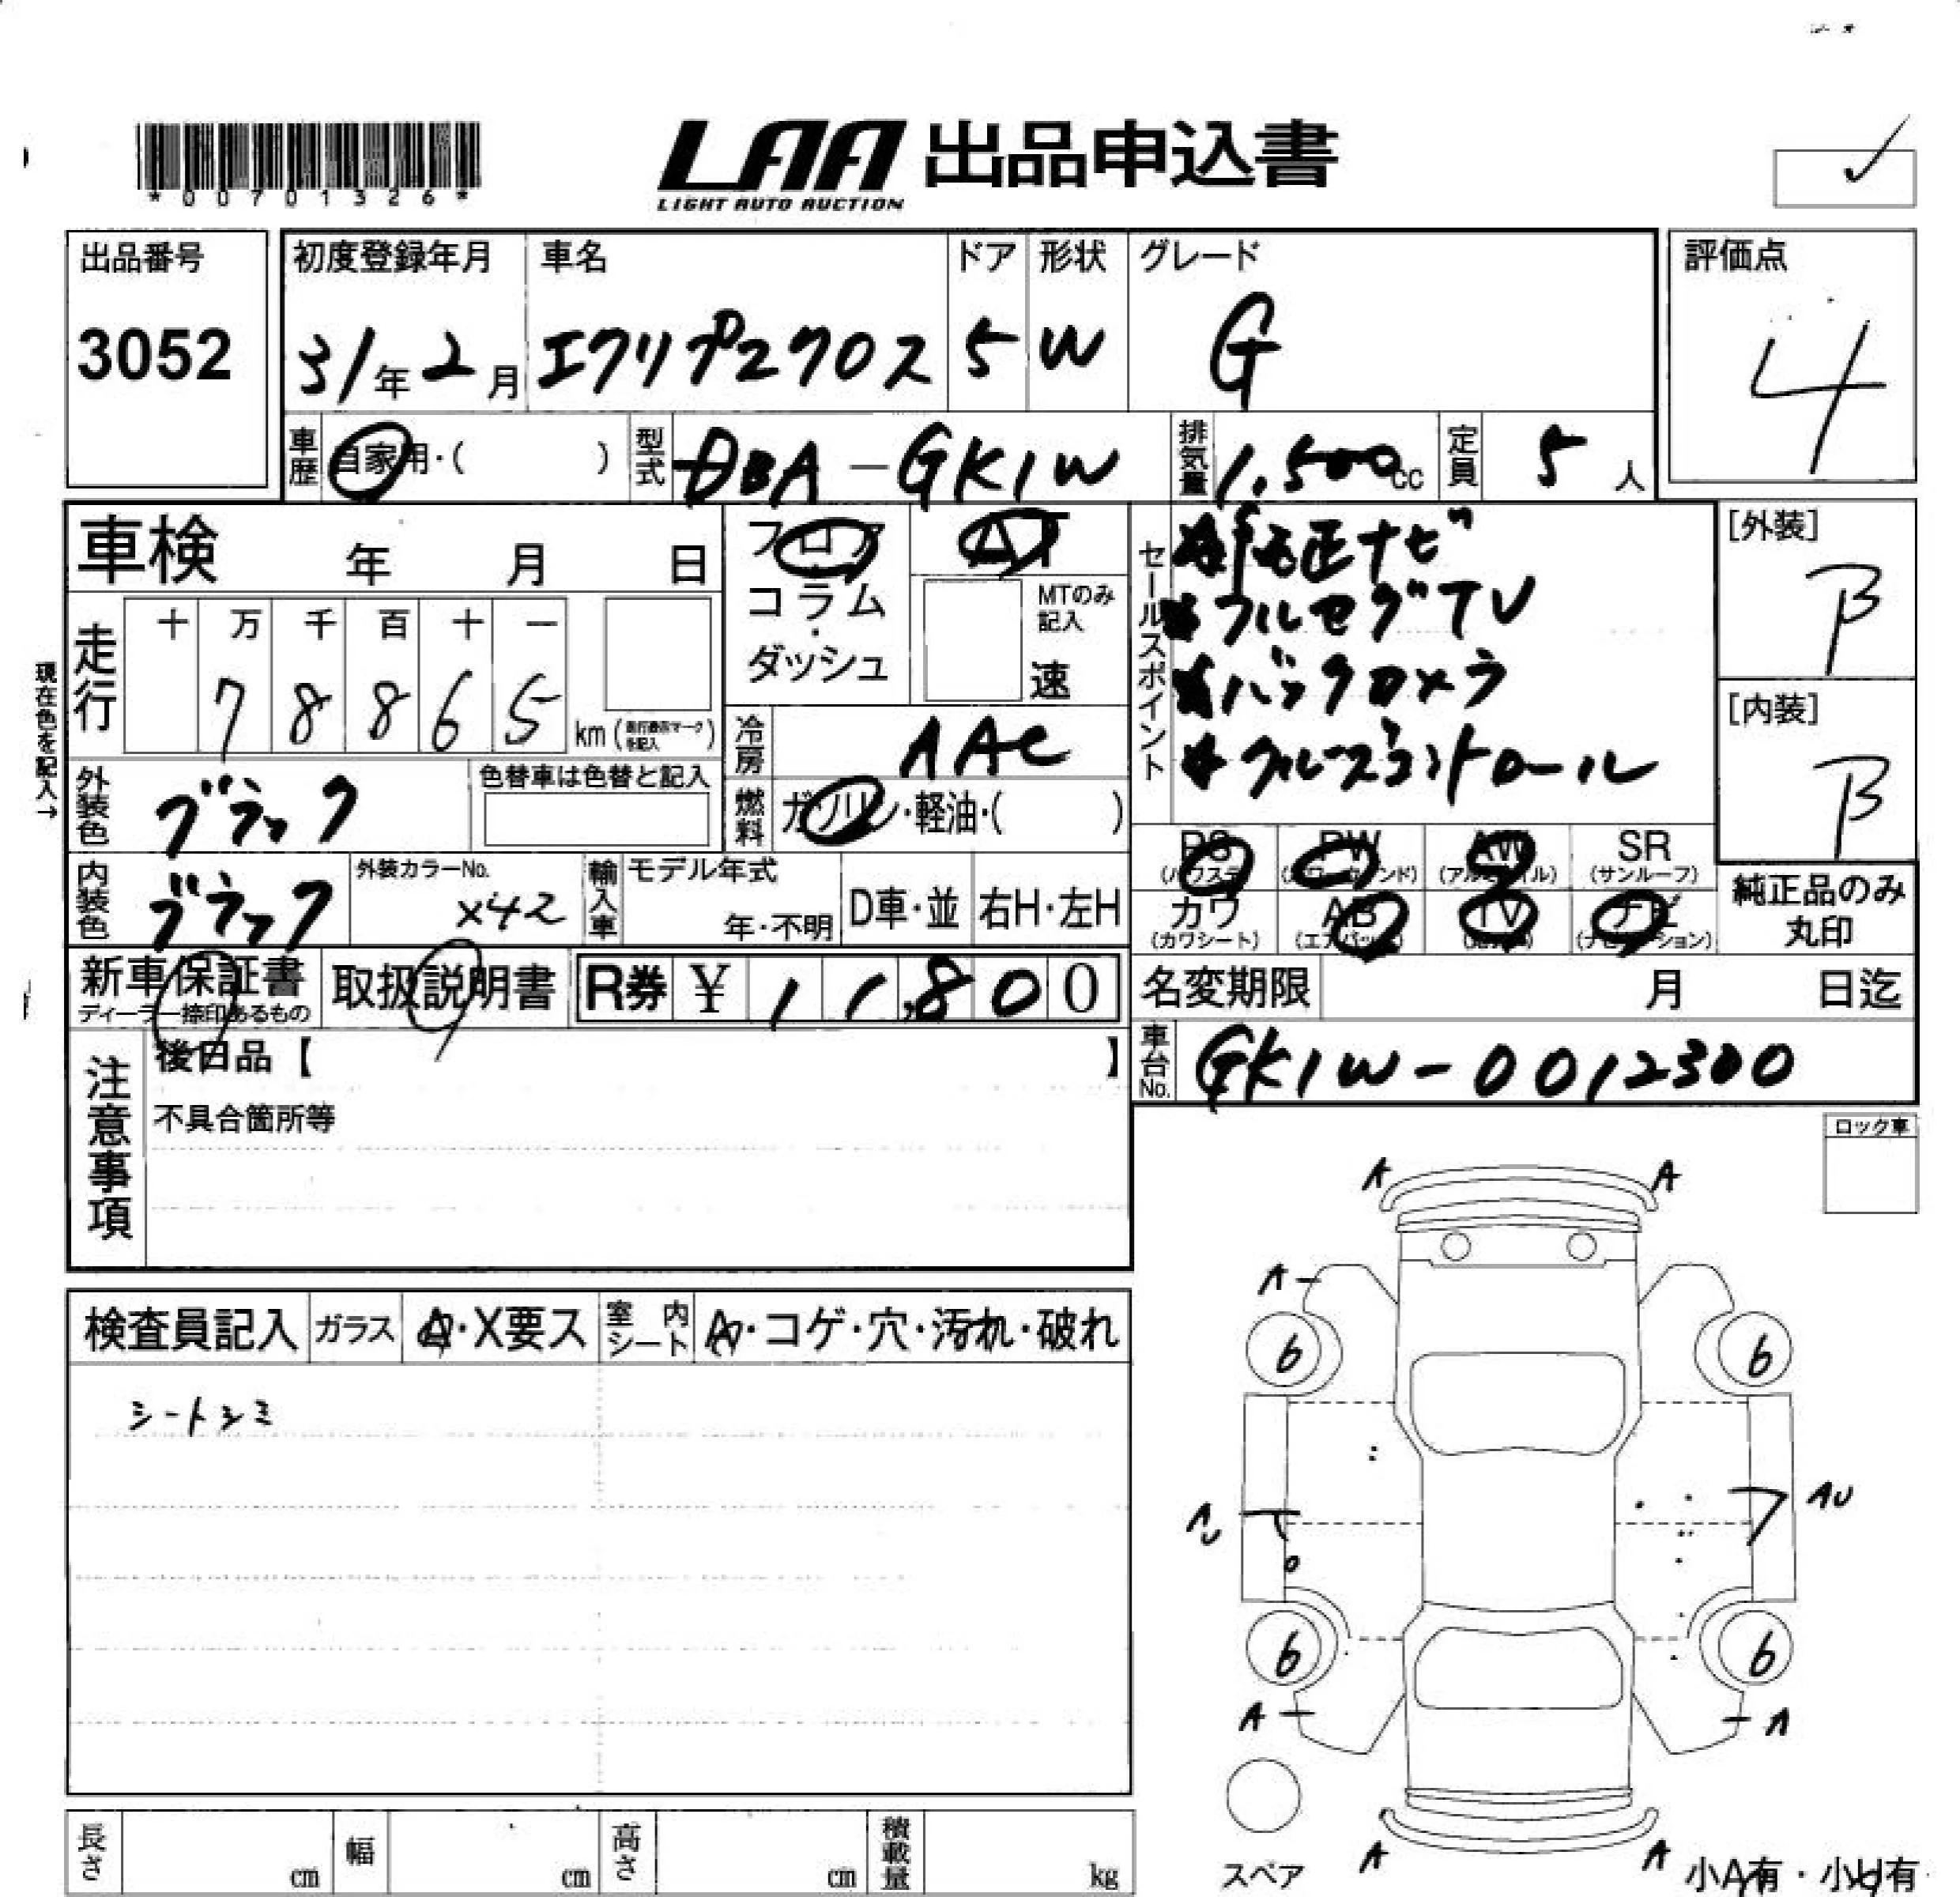 *00701326*
LAA 出品申込書
LIGHT AUTO AUCTION
✓
出品番号
3052
初度登録年月
31年2月
車名
エクリプスクロス
ドア
5
形状
W
グレード
G
評価点
4
車歴
自家用・( )
型式
DBA-GK1W
排気量
1.500cc
定員
5人
車検 年 月 日
フロア
コラム
・
ダッシュ
AT
MTのみ
記入
速
セールスポイント
純正ナビ
フルセグTV
バックカメラ
クルーズコントロール
[外装]
B
[内装]
B
現在色を記入→
走行
十 万 千 百 十 一
7 8 8 6 5
km
冷房
AAC
外装色
ブラック
色替車は色替と記入
燃料
ガソリン・軽油・( )
PS
(パワステ)
PW
AW
SR
(サンルーフ)
カワ
(カワシート)
AB
(エアバック)
TV
ナビ
(ナビゲーション)
純正品のみ
丸印
内装色
ブラック
外装カラーNo.
X42
輸入車
モデル年式
年・不明
D車・並
右H・左H
新車保証書
ディーラー捺印あるもの
取扱説明書
R券 ¥ 11,800
名変期限 月 日迄
車台No.
GK1W-0012300
注意事項
後日品【 】
不具合箇所等
ロック車
検査員記入
ガラス
A・X要ス
室内
シート
A・コゲ・穴・汚れ・破れ
シートシミ
A A
A
6 6
AU AU
6 6
A A
A A
スペア
小A有・小U有
長さ cm
幅 cm
高さ cm
積載量 kg